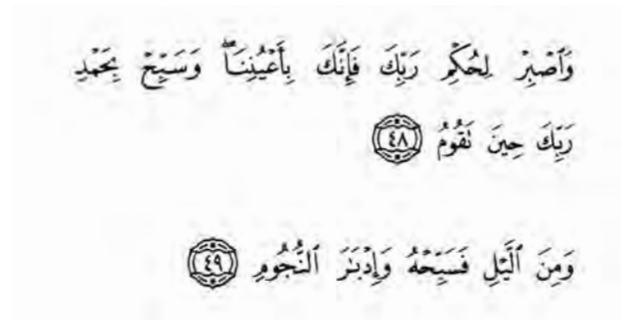 وَٱصْبِرْ لِحُكْمِ رَبِّكَ فَإِنَّكَ بِأَعْيُنِنَاۖ وَسَبِّحْ بِحَمْدِ
رَبِّكَ حِينَ تَقُومُ ٤٨
وَمِنَ ٱلَّيْلِ فَسَبِّحْهُ وَإِدْبَٰرَ ٱلنُّجُومِ ٤٩